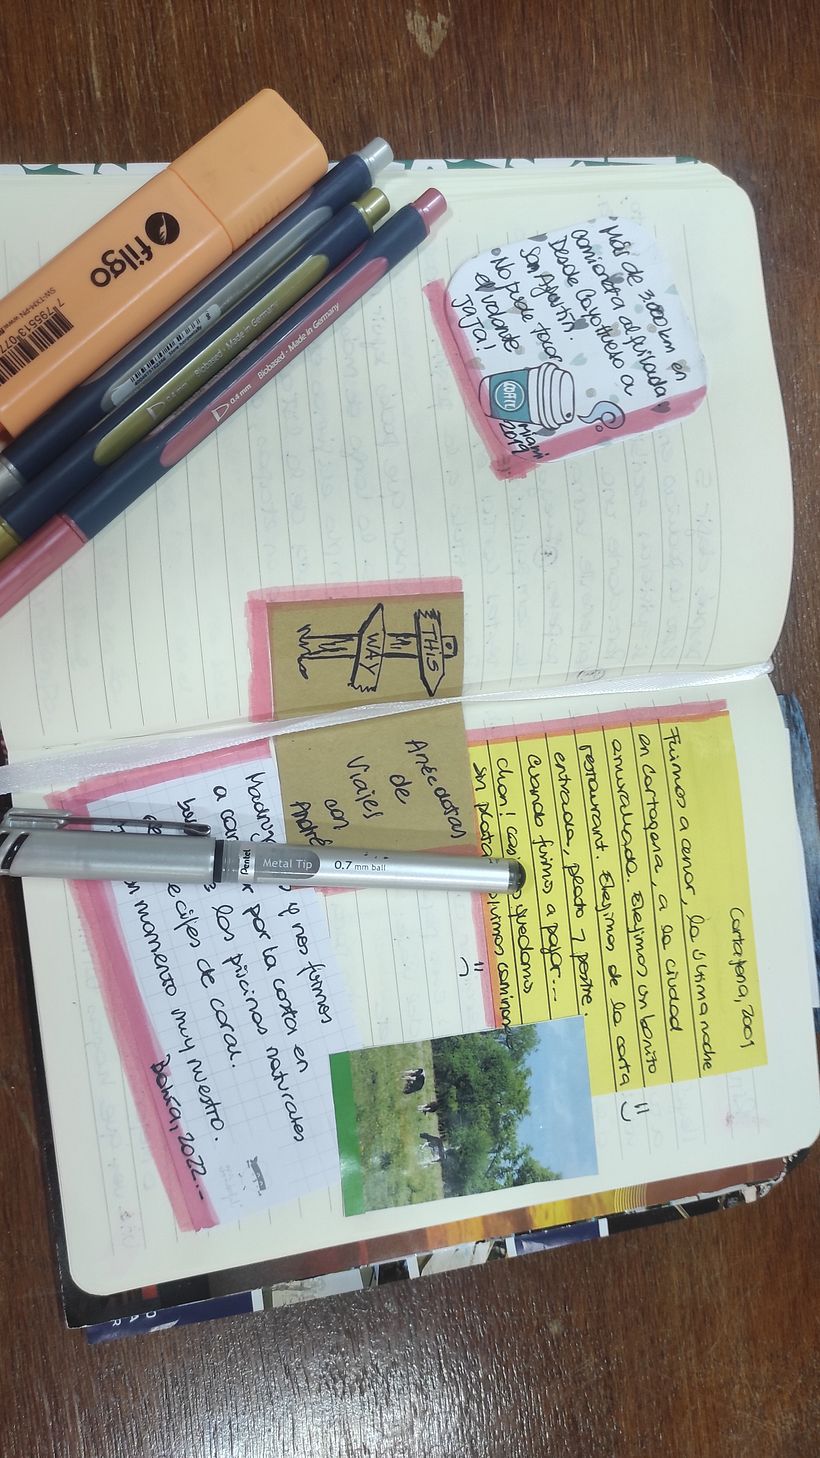 Más de 3.000 km en
camioneta alquilada
Desde Cayo Hueso a
San Agustín.
No pude tocar
el volante
JAJA!
COFFEE
Miami
2019
filgo
Biobased · Made in Germany
0.4 mm Biobased · Made in Germany
THIS
WAY
Anécdotas
de
Viajes
con
André
Cartagena, 2009
Fuimos a cenar, la última noche
en Cartagena, a la ciudad
amurallada. Elejimos un bonito
restaurant. Elejimos de la carta
entrada, plato y postre.
Cuando fuimos a pagar...
chan! quedamos
sin caminando
Pentel Metal Tip 0.7 mm ball
y nos fuimos
a por la costa en
los piscinas naturales
de coral.
momento muy nuestro.
Bahía, 2022.-